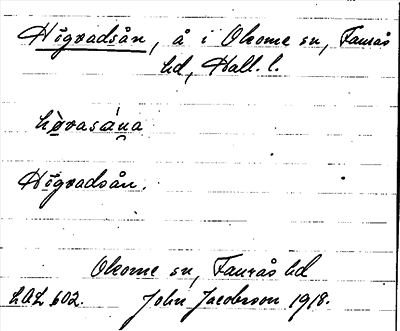 Högvadsån, å i Okome sn, Faurås
hd, Hall. l.
hø̀vasána
Högvadsån.
Okome sn, Faurås hd
LAL 602. John Jacobsson 1918.